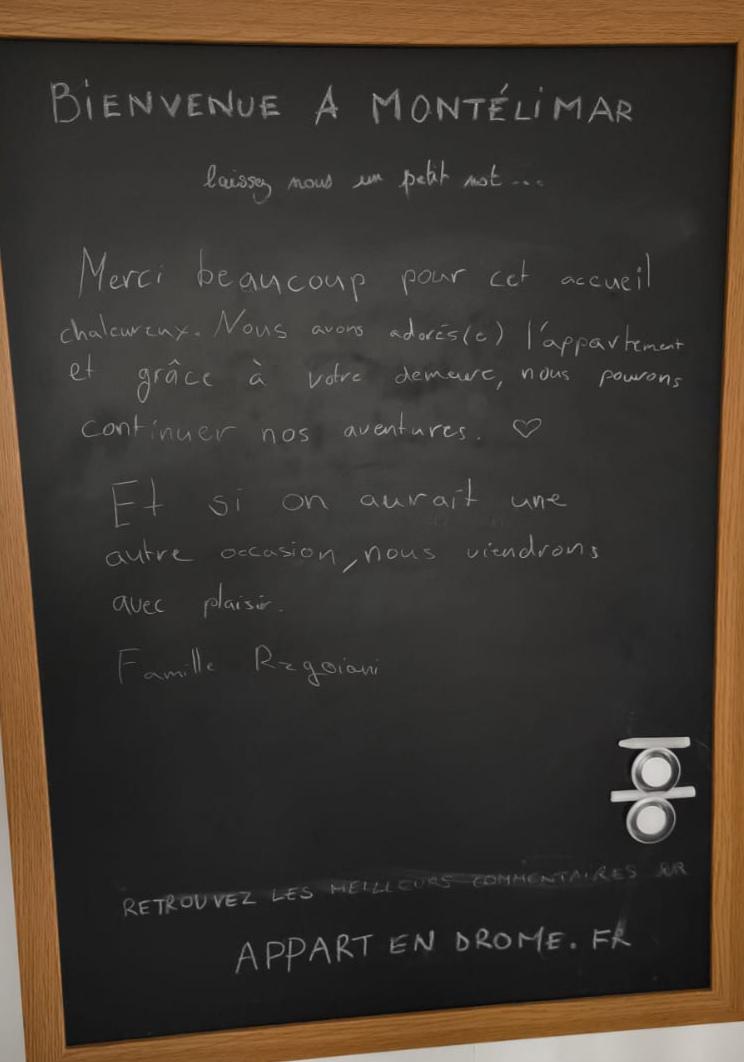 BIENVENUE A MONTÉLIMAR
laissez nous un petit mot...
Merci beaucoup pour cet accueil
chaleureux. Nous avons adorés(e) l'appartement
et grâce à votre demeure, nous pouvons
continuer nos aventures. ♡
Et si on aurait une
autre occasion, nous viendrons
avec plaisir.
Famille
RETROUVEZ LES MEILLEURS COMMENTAIRES SUR
APPART EN DROME.FR